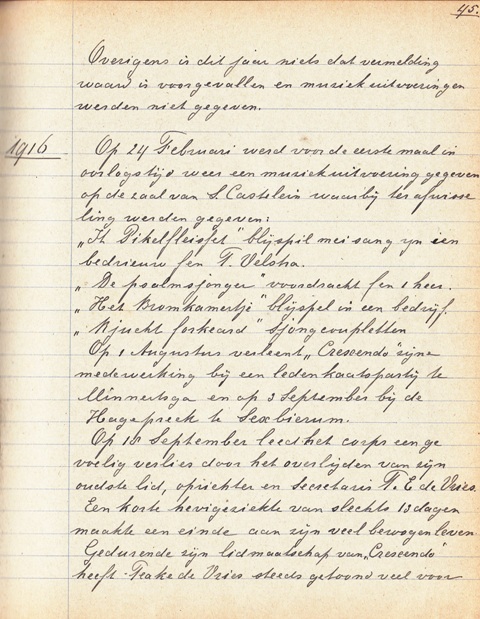 45.
Overigens is dit jaar niets dat vermelding
waard is voorgevallen en muziekuitvoeringen
werden niet gegeven.
1916
Op 24 Februari werd voor de eerste maal in
oorlogstijd weer een muziekuitvoering gegeven
op de zaal van S. Castelein waarbij ter afwisse
ling werden gegeven:
„It Pikelfleisfet" blijspil mei sang yn ien
bedrieuw fen T. Velstra.
„De psalmsjonger" voordracht fen 1 heer.
„Het Bromkamertje" blijspel in een bedrijf.
„Bjucht forkeard" Sjongcoupletten
Op 1 Augustus verleent „Crescendo" zijne
medewerking bij een ledenkaatspartij te
Minnertsga en op 3 September bij de
Hagepreek te Sexbierum.
Op 18 September leed het corps een ge
voelig verlies door het overlijden van zijn
oudste lid, oprichter en Secretaris F. E. de Vries.
Een korte hevige ziekte van slechts 13 dagen
maakte een einde aan zijn veel bewogen leven.
Gedurende zijn lidmaatschap van „Crescendo"
heeft Feake de Vries steeds getoond veel voor